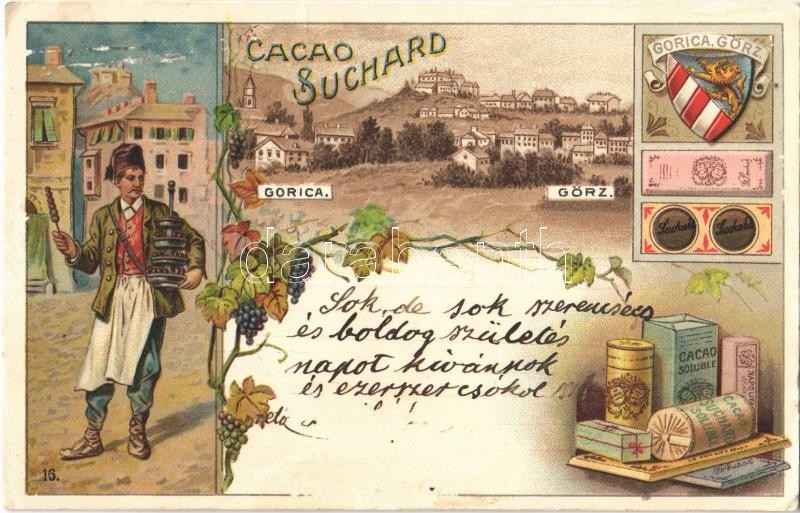 CACAO
SUCHARD
GORICA. GÖRZ.
GORICA.
GÖRZ.
Suchard Suchard
Sok, de sok szerencsés
és boldog születés
napot kívánnok
és ezerszer csókol
CACAO
SOLUBLE
CACAO
SUCHARD
SOLUBLE
16.